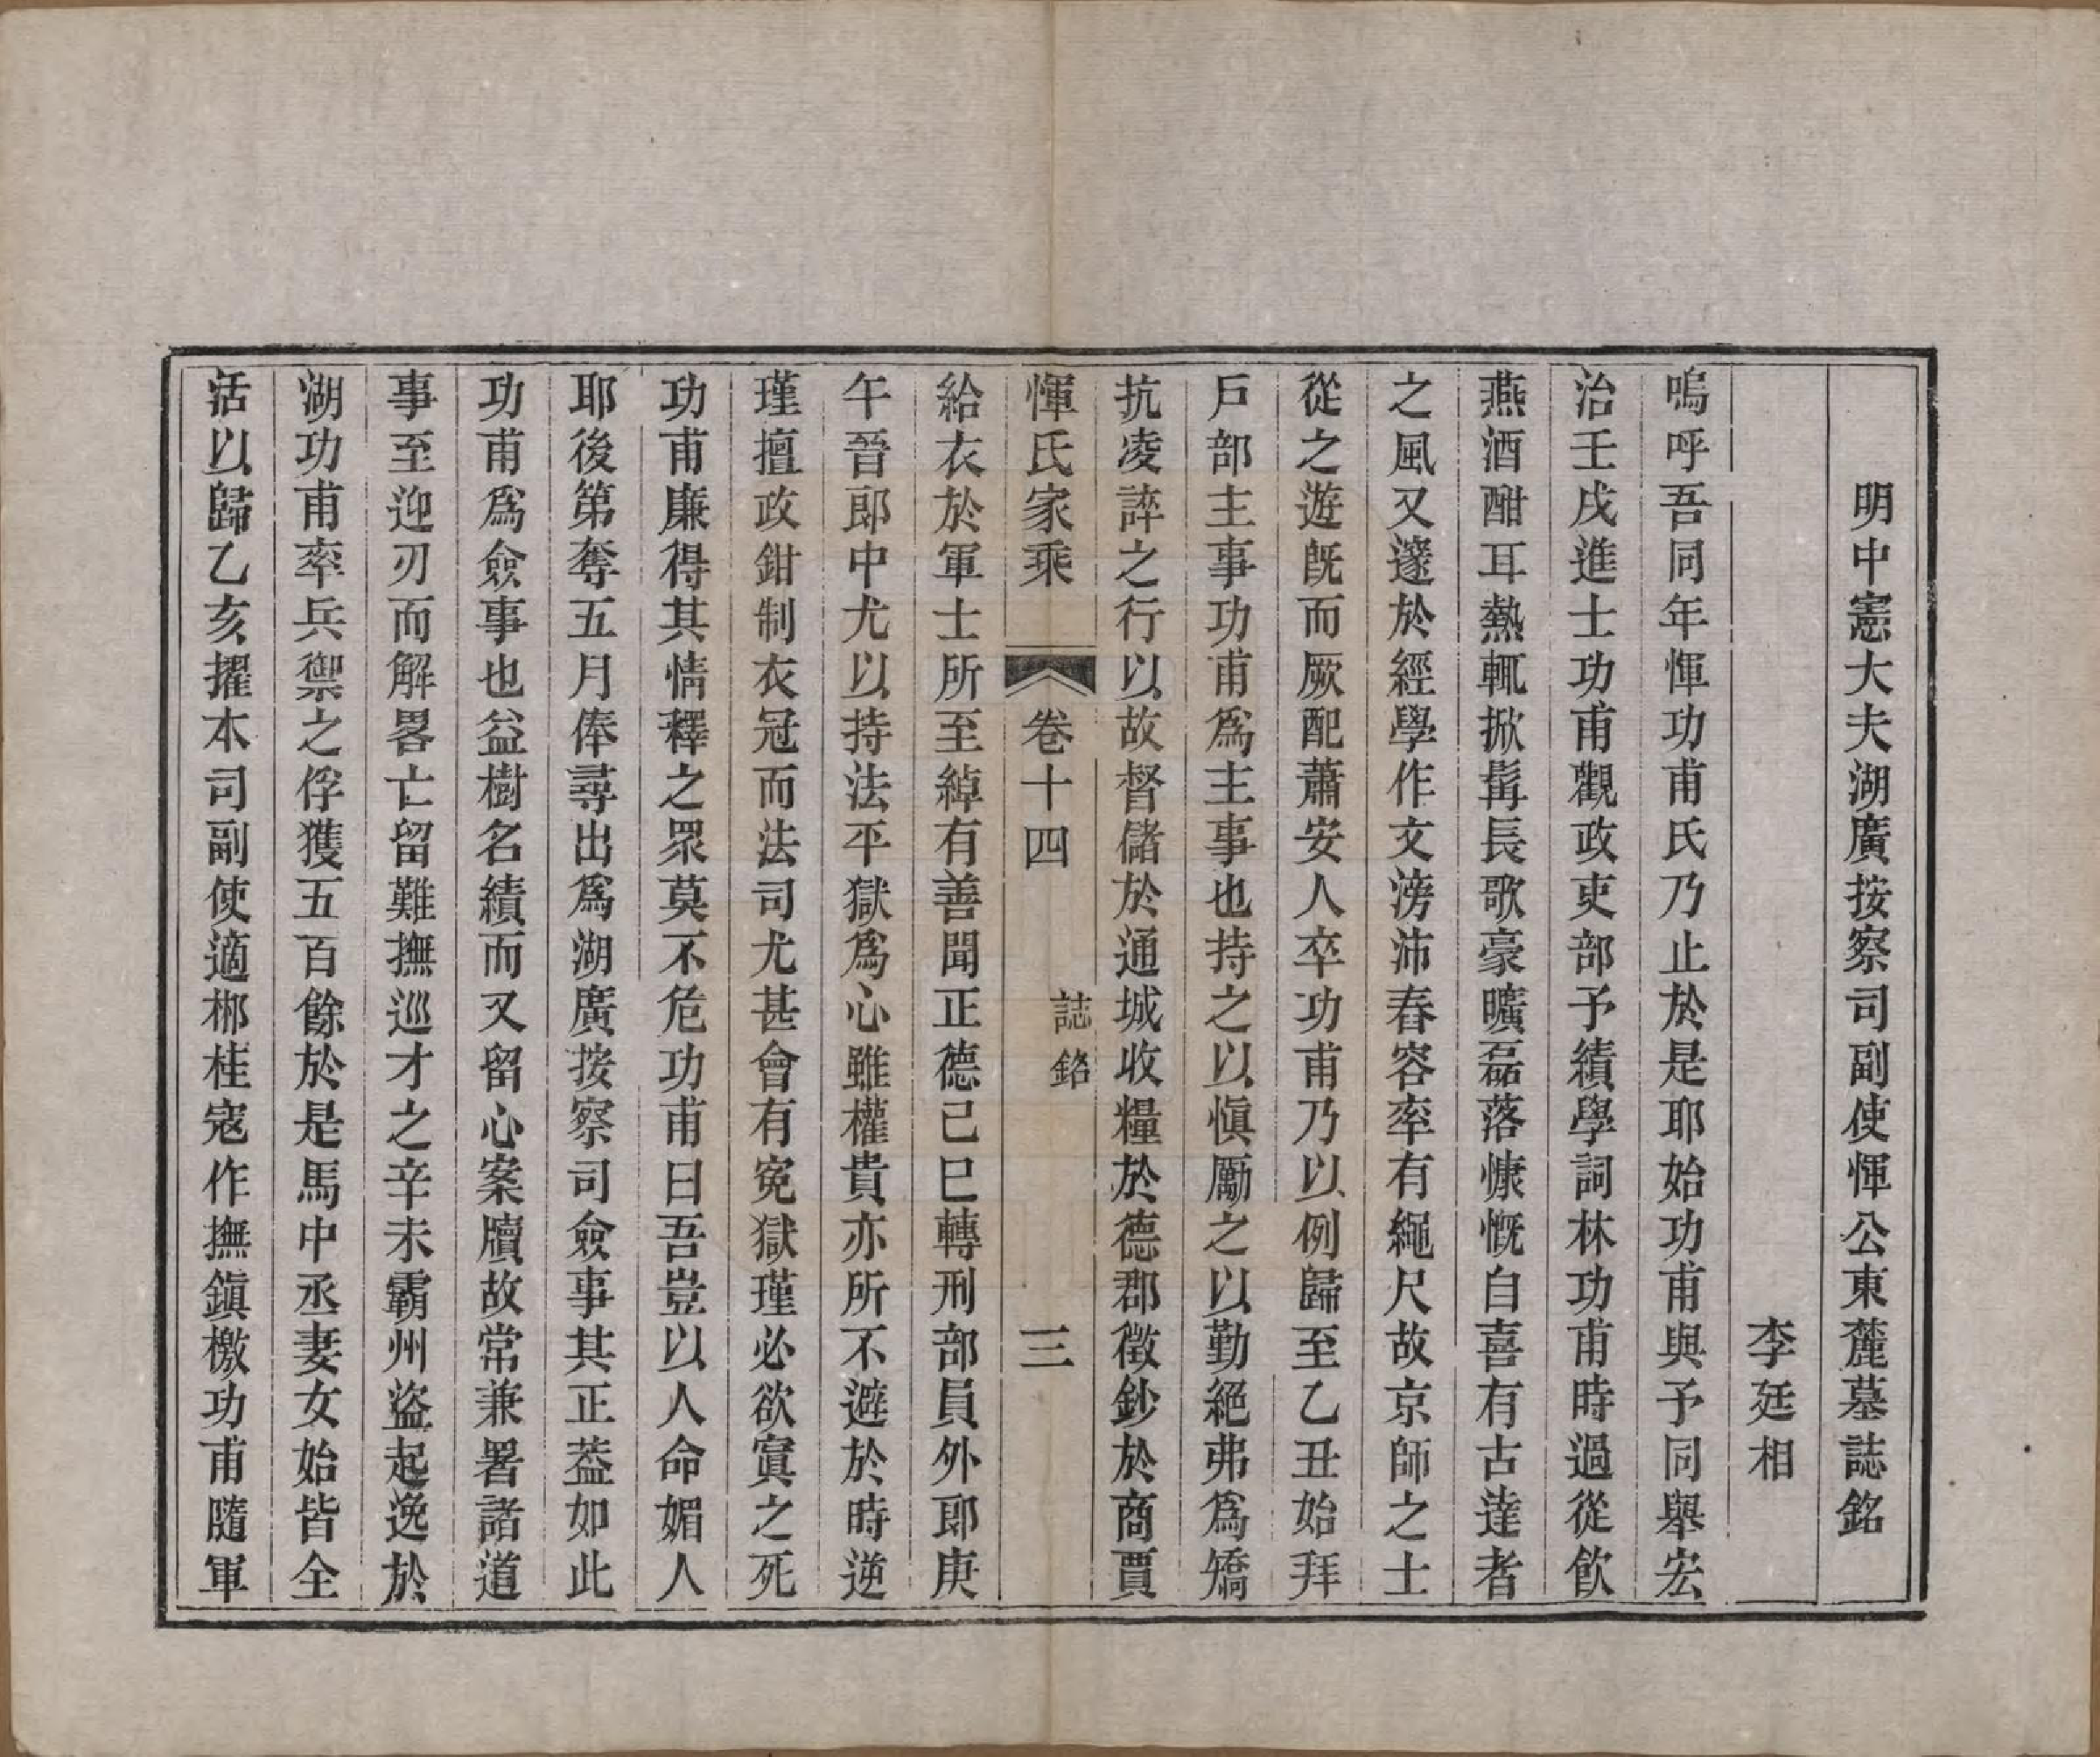 明中憲大夫湖廣按察司副使惲公東麓墓誌銘
李廷相
嗚呼吾同年惲功甫氏乃止於是耶始功甫與予同舉宏
治壬戌進士功甫觀政吏部予績學詞林功甫時過從飲
燕酒酣耳熱輒掀髯長歌豪曠磊落慷慨自喜有古達者
之風又邃於經學作文滂沛舂容率有繩尺故京師之士
從之遊旣而厥配蕭安人卒功甫乃以例歸至乙丑始拜
戶部主事功甫爲主事也持之以愼勵之以勤絕弗爲矯
抗凌誶之行以故督儲於通城收糧於德郡徵鈔於商賈
惲氏家乘 卷十四 誌銘 三
給衣於軍士所至綽有善聞正德己巳轉刑部員外郎庚
午晉郎中尤以持法平獄爲心雖權貴亦所不避於時逆
瑾擅政鉗制衣冠而法司尤甚會有寃獄瑾必欲寘之死
功甫廉得其情釋之眾莫不危功甫曰吾豈以人命媚人
耶後第奪五月俸尋出爲湖廣按察司僉事其正葢如此
功甫爲僉事也益樹名績而又留心案牘故常兼署諸道
事至迎刃而解畧亡留難撫巡才之辛未霸州盜起逸於
湖功甫率兵禦之俘獲五百餘於是馬中丞妻女始皆全
活以歸乙亥擢本司副使適郴桂寇作撫鎭檄功甫隨軍